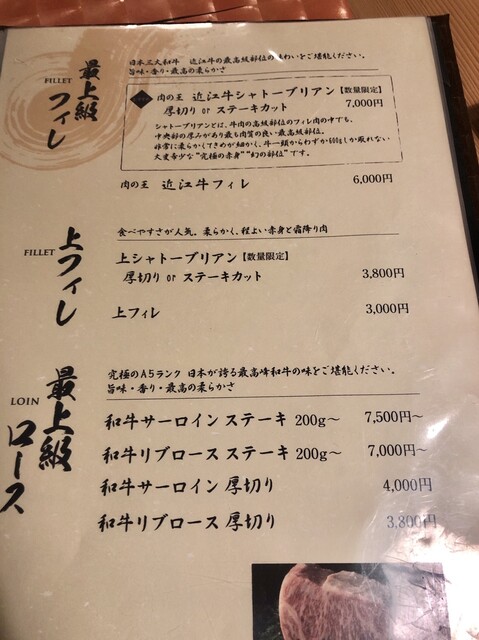 最上級フィレ
FILLET
日本三大和牛 近江牛の最高級部位の味わいをご堪能ください。
旨味・香り・最高の柔らかさ
肉の王 近江牛シャトーブリアン【数量限定】
厚切り or ステーキカット 7,000円
シャトーブリアンとは、牛肉の高級部位のフィレ肉の中でも、
中央部の厚みがあり最も肉質の良い最高級部位。
非常に柔らかくてきめが細かく、牛一頭からわずか600gしか取れない
大変希少な“究極の赤身”“幻の部位”です。
肉の王 近江牛フィレ 6,000円
上フィレ
FILLET
食べやすさが人気。柔らかく、程よい赤身と霜降り肉
上シャトーブリアン【数量限定】
厚切り or ステーキカット 3,800円
上フィレ 3,000円
最上級ロース
LOIN
究極のA5ランク 日本が誇る最高峰和牛の味をご堪能ください。
旨味・香り・最高の柔らかさ
和牛サーロイン ステーキ 200g〜 7,500円〜
和牛リブロース ステーキ 200g〜 7,000円〜
和牛サーロイン 厚切り 4,000円
和牛リブロース 厚切り 3,800円